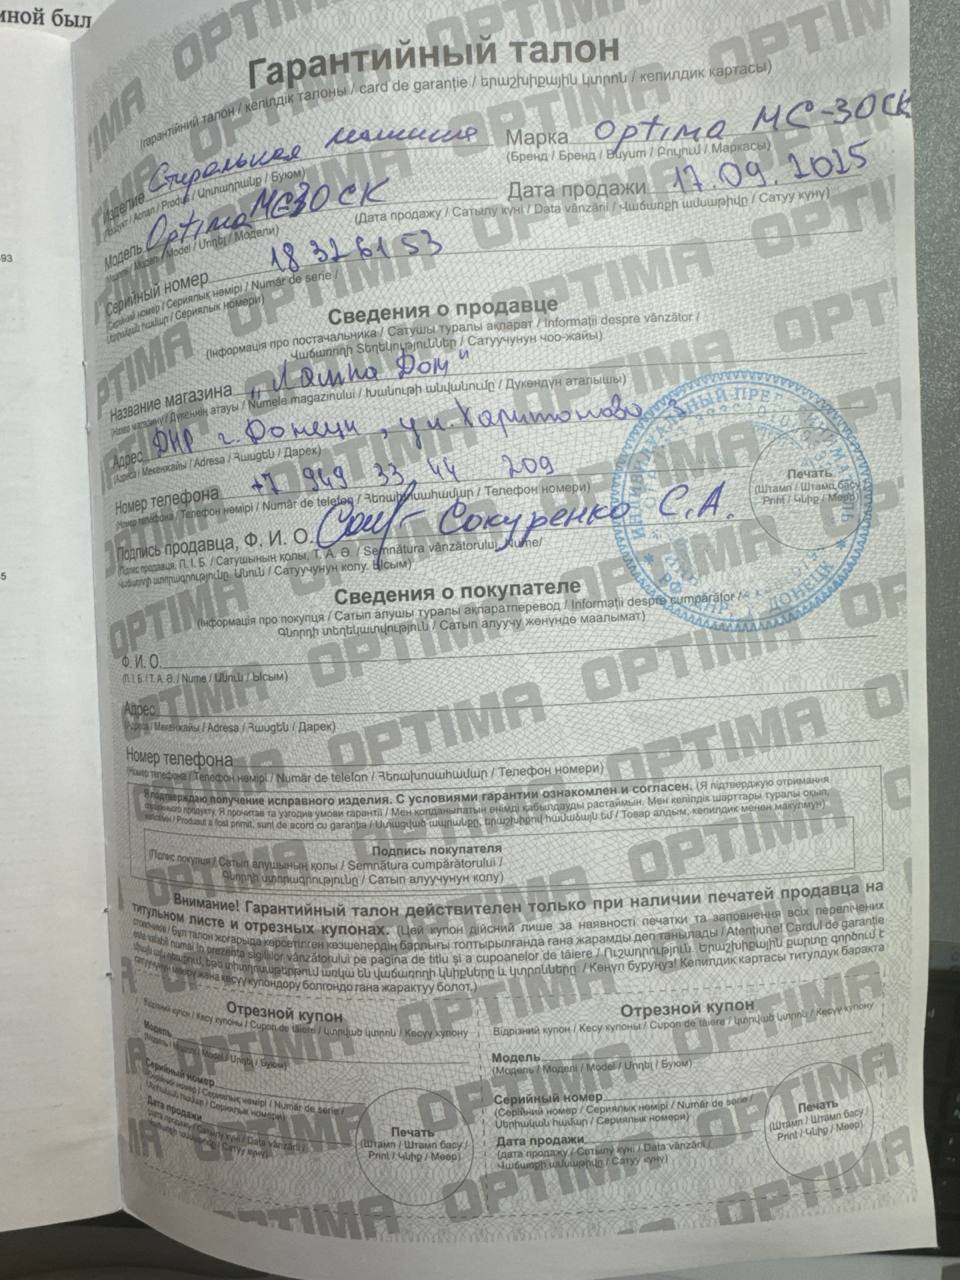 иной был
93
5
Гарантийный талон
(гарантійний талон / кепілдік талоны / card de garanție / երաշխիքային կտրոն / кепилдик картасы)
Изделие Стиральная машина Марка Optima МС-30СК
(Бренд / Бренд / Buyum / Բույում / Маркасы)
Модель Optima МС30СК Дата продажи 17.09.2025
(Дата продажу / Сатылу күні / Data vânzării / Վաճառքի ամսաթիվը / Сатуу күнү)
Серийный номер 18 326153
(Серійний номер / Сериялық нөмірі / Număr de serie /
Սերիական համար / Сериялык номери)
Сведения о продавце
(Інформація про постачальника / Сатушы туралы ақпарат / Informații despre vânzător /
Վաճառողի Տեղեկություններ / Сатуучунун чоо-жайы)
Название магазина
"Лашка Дом"
Адрес ДНР г. Донецк, ул. Харитоново 3
(Адреса / Мекенжайы / Adresa / Հասցեն / Дарек)
Номер телефона +7 949 33 44 209
(Номер телефону / Телефон нөмірі / Număr de telefon / Հեռախոսահամար / Телефон номери)
Подпись продавца, Ф. И. О. Сокуренко С.А.
Печать
(Штамп / Штамп басу /
Print / Կնիք / Мөөр)
Сведения о покупателе
(Інформація про покупця / Сатып алушы туралы ақпаратперевод / Informații despre cumpărător /
Գնորդի տեղեկատվություն / Сатып алуучу жөнүндө маалымат)
Ф. И. О.
(П. І. Б. / Т. А. Ә. / Nume / Անուն / Ысым)
Адрес
(Адреса / Мекенжайы / Adresa / Հասցեն / Дарек)
Номер телефона
(Номер телефона / Телефон нөмірі / Număr de telefon / Հեռախոսահամար / Телефон номери)
Я подтверждаю получение исправного изделия. С условиями гарантии ознакомлен и согласен. (Я підтверджую отримання
справного продукту. Я прочитав та узгодив умови гарантії / Мен қолданылатын өнімді қабылдауды растаймын. Мен кепілдік шарттары туралы оқып,
Produsul a fost primit, sunt de acord cu garanția / Ստացված ապրանքը, երաշխիքով համաձայն եմ / Товар алдым, кепилдик менен макулмун)
Подпись покупателя
(Підпис покупця / Сатып алушының қолы / Semnătura cumpărătorului /
Գնորդի ստորագրությունը / Сатып алуучунун колу)
Внимание! Гарантийный талон действителен только при наличии печатей продавца на
титульном листе и отрезных купонах. (Цей купон дійсний лише за наявності печатки та заповнення всіх перелічених
Бұл талон жоғарыда көрсетілген көзшелердің барлығы толтырылғанда ғана жарамды деп танылады / Atenție! Cardul de garanție
este valabil numai în prezența sigiliilor vânzătorului pe pagina de titlu și a cupoanelor de tăiere / Ուշադրություն. Երաշխիքային քարտը գործում է
Көңүл буруңуз! Кепилдик картасы титулдук баракта
сатуучунун мөөрү жана кесүү купондору болгондо гана жарактуу болот.)
Отрезной купон
Відрізний купон / Кесу купоны / Cupon de tăiere / կտրված կտրոն / Кесүү купону
Модель
Серийный номер
Дата продажи
Печать
(Штамп / Штамп басу /
Print / Կնիք / Мөөр)
Отрезной купон
Відрізний купон / Кесу купоны / Cupon de tăiere / կտրված կտրոն / Кесүү купону
Модель
(Модель / Моделі / Model / Մոդել / Буюм)
Серийный номер
(Серійний номер / Сериялық нөмірі / Număr de serie /
Սերիական համար / Сериялык номери)
Дата продажи
(дата продажу / Сатылу күні / Data vânzării /
Վաճառքի ամսաթիվը / Сатуу күнү)
Печать
(Штамп / Штамп басу /
Print / Կնիք / Мөөр)